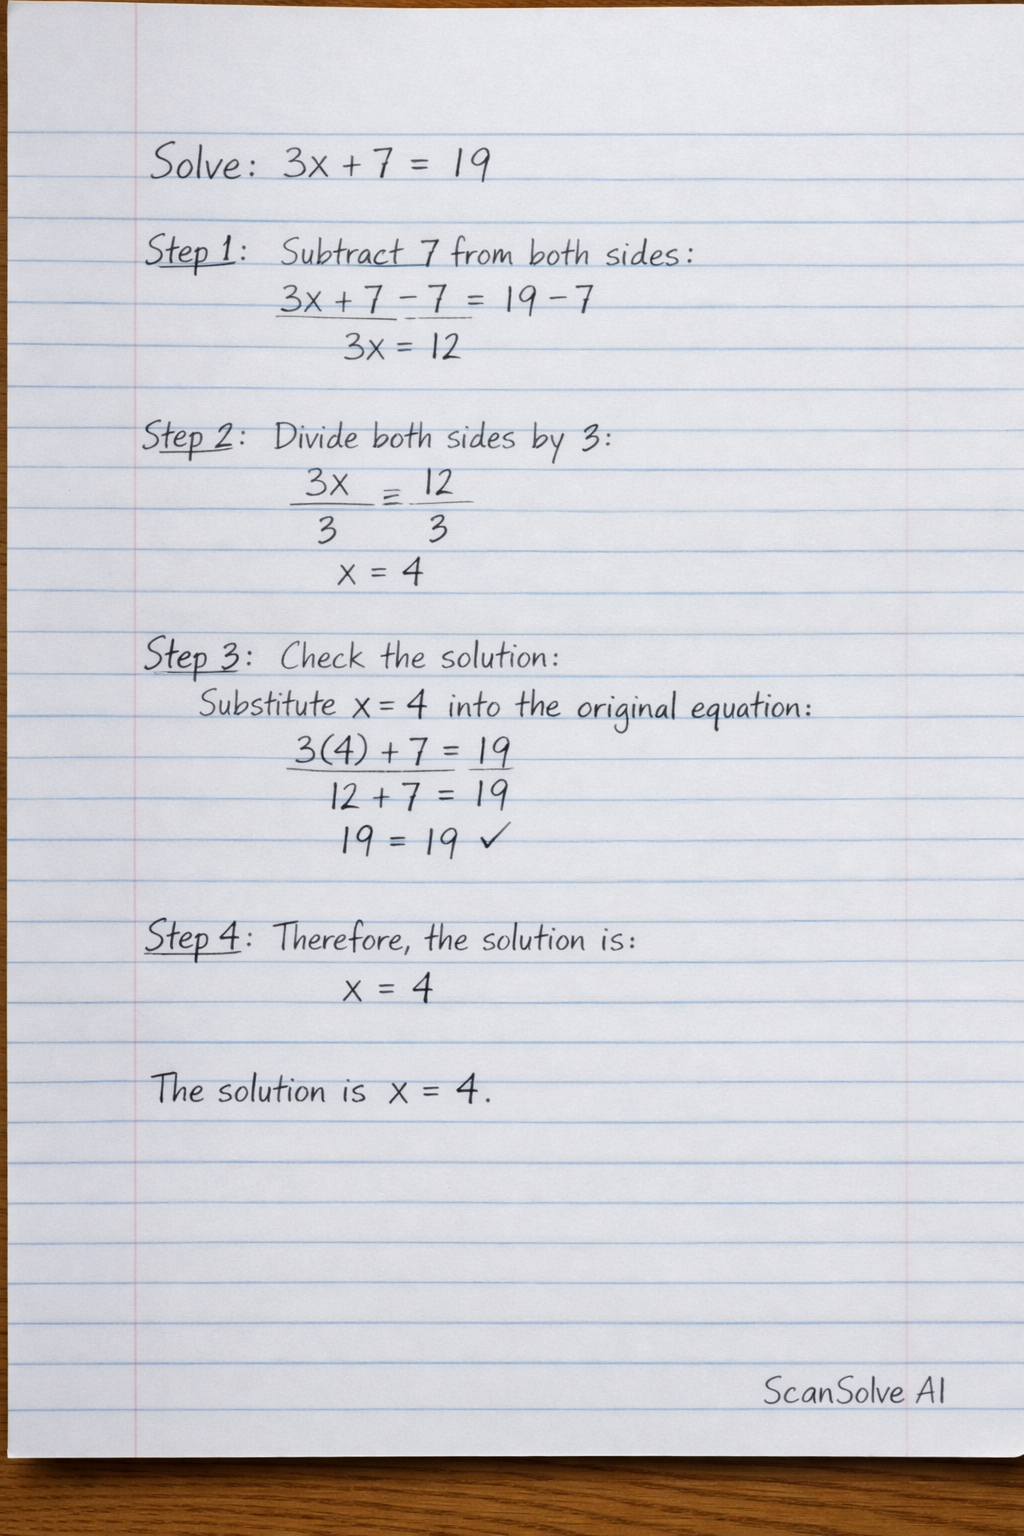 Solve: 3x + 7 = 19
Step 1: Subtract 7 from both sides:
3x + 7 - 7 = 19 - 7
3x = 12
Step 2: Divide both sides by 3:
3x/3 = 12/3
x = 4
Step 3: Check the solution:
Substitute x = 4 into the original equation:
3(4) + 7 = 19
12 + 7 = 19
19 = 19 ✓
Step 4: Therefore, the solution is:
x = 4
The solution is x = 4.
ScanSolve AI